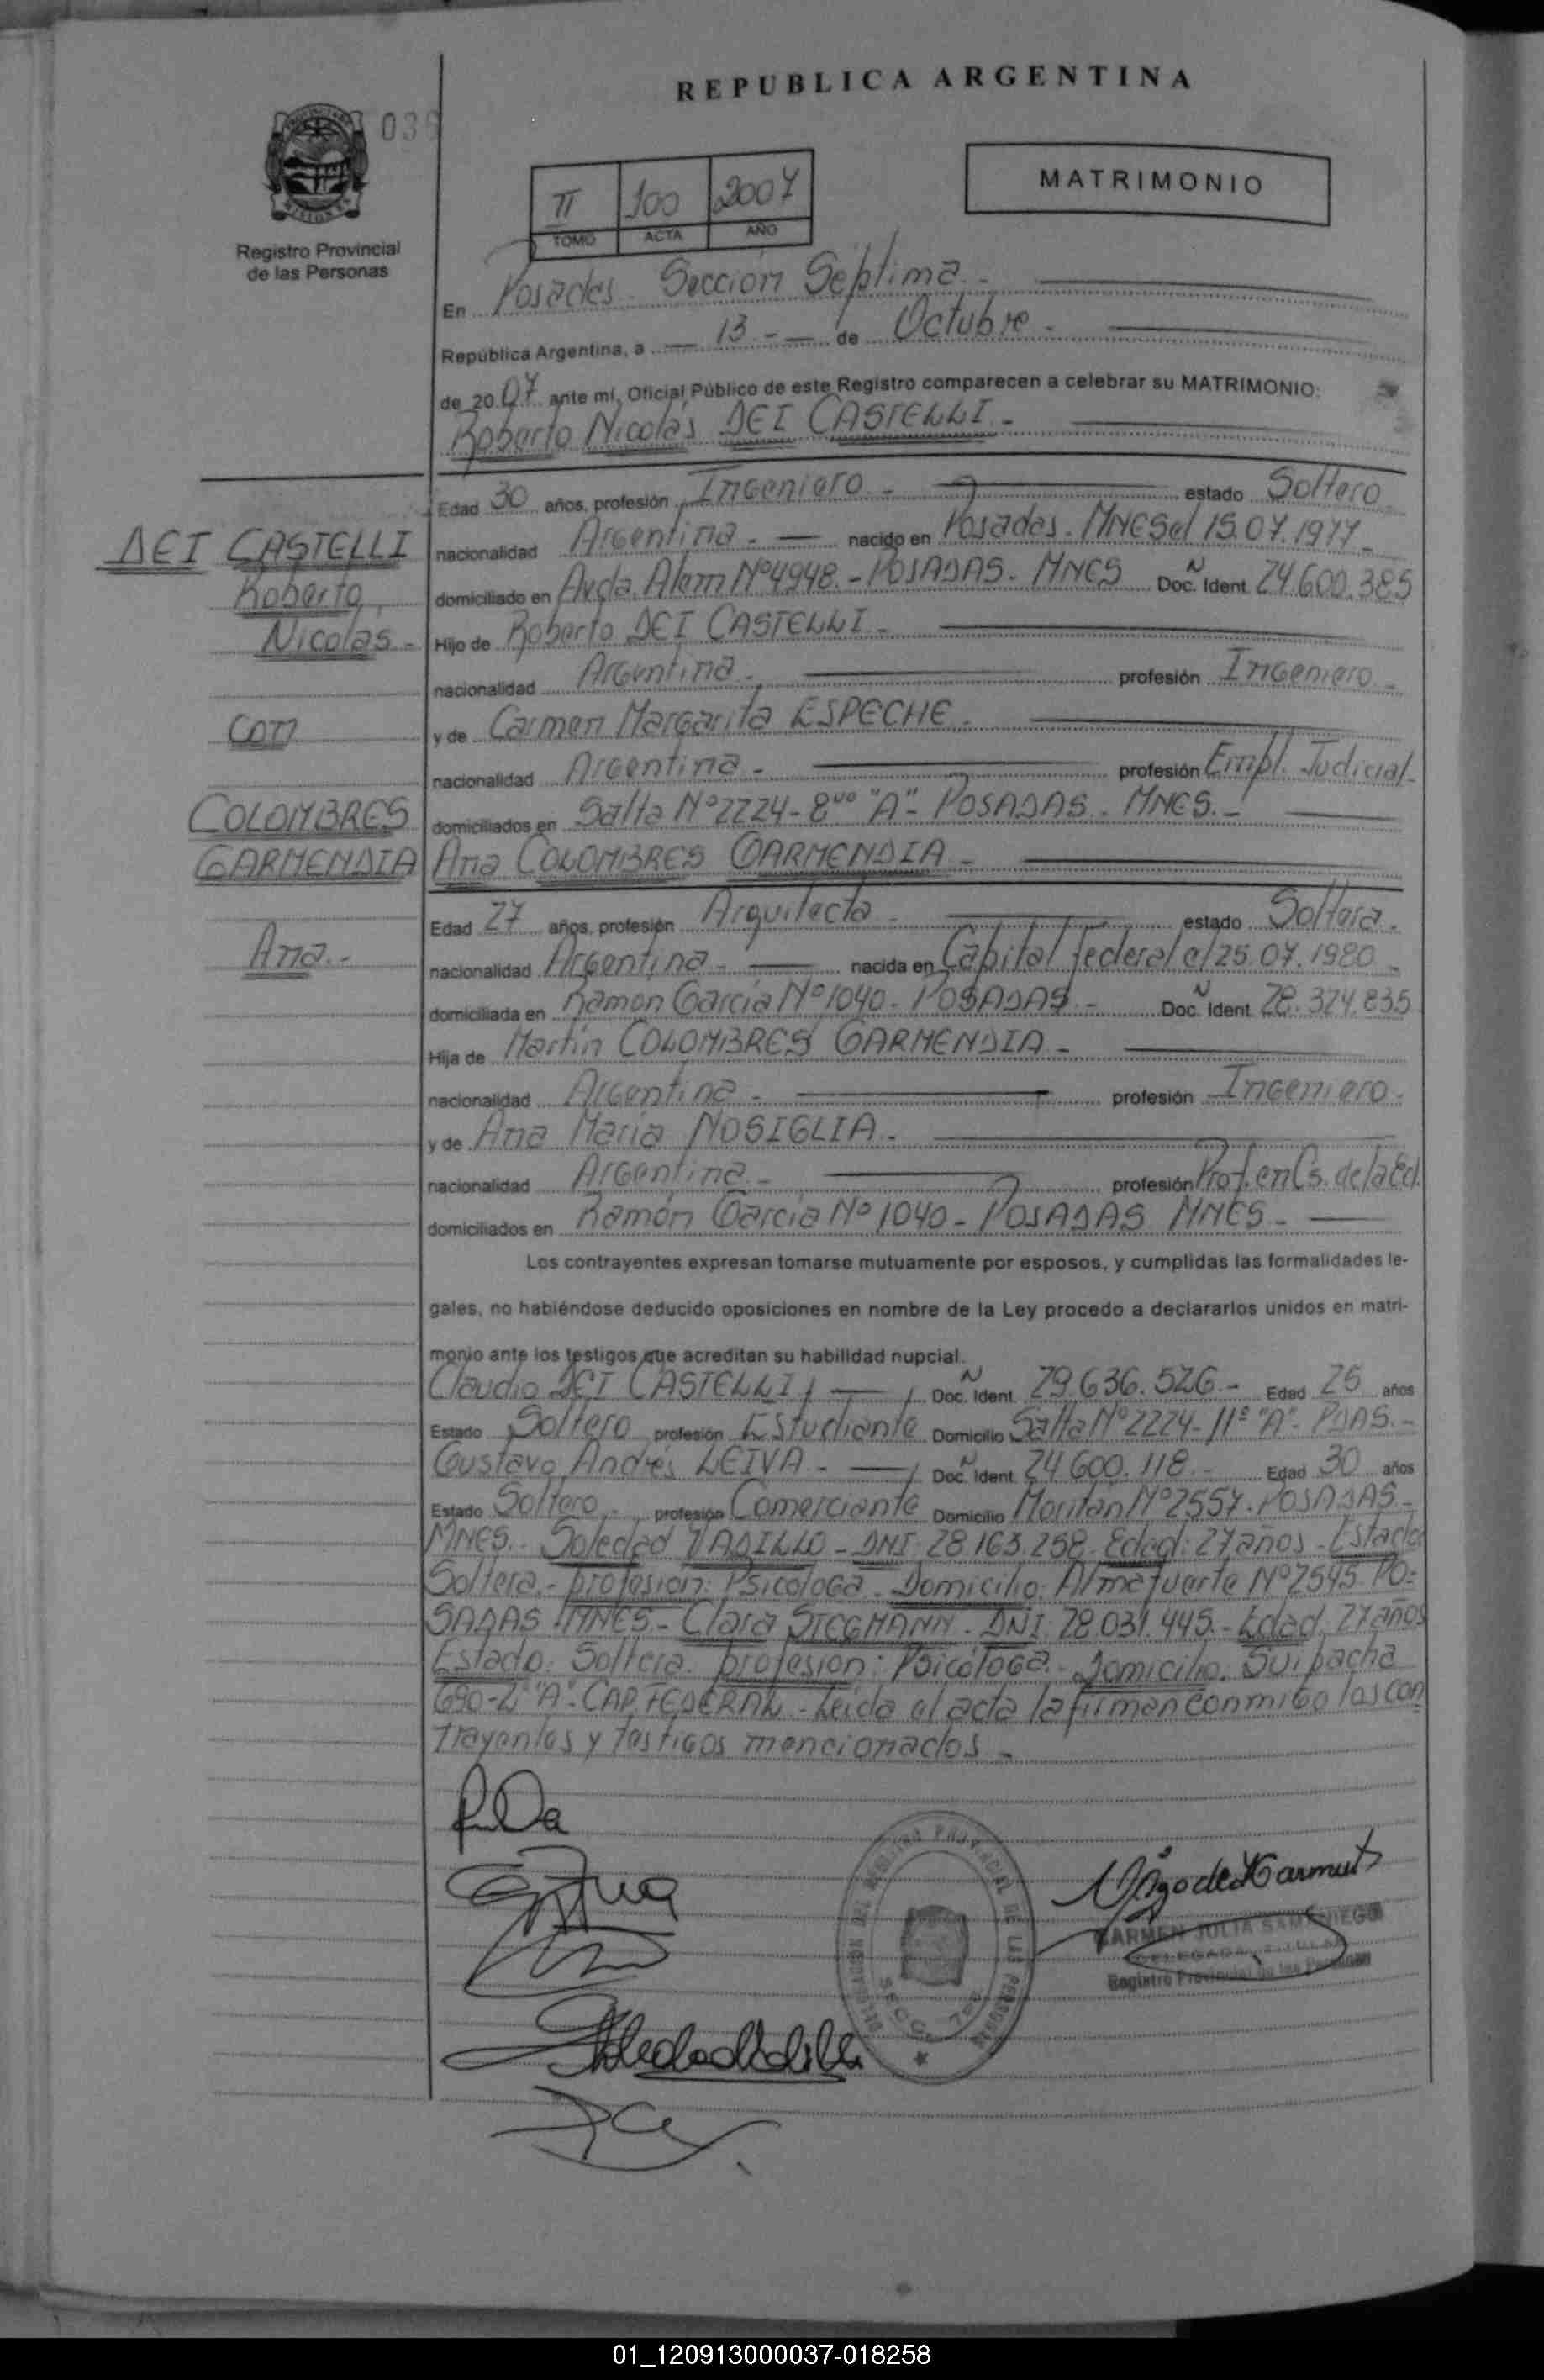 REPUBLICA ARGENTINA
036
MATRIMONIO
II 100 2007
TOMO ACTA AÑO
Registro Provincial
de las Personas
En Posadas. Sección Séptima.-
República Argentina, a 13.- de Octubre -
de 20 07 ante mí, Oficial Público de este Registro comparecen a celebrar su MATRIMONIO:
Roberto Nicolás DEI CASTELLI.-
Edad 30 años, profesión Ingeniero - estado Soltero
DEI CASTELLI
nacionalidad Argentina.- nacido en Posadas. MNES el 15.07.1977-
Roberto
domiciliado en Avda. Alem Nº 4948.- POSADAS. MNES Doc. Ident. N 24.600.385
Nicolás.-
Hijo de Roberto DEI CASTELLI -
nacionalidad Argentina. profesión Ingeniero -
con
y de Carmen Margarita ESPECHE.
nacionalidad Argentina - profesión Empl. Judicial-
COLOMBRES
domiciliados en Salta Nº 2224- 8vo "A"- POSADAS. MNES.-
GARMENDIA
Ana COLOMBRES GARMENDIA -
Edad 27 años, profesión Arquitecta - estado Soltera.
Ana.-
nacionalidad Argentina - nacida en Capital Federal el 25.07.1980 -
domiciliada en Ramón García Nº 1040- POSADAS.- Doc. Ident. N 28.324.835
Hija de Martín COLOMBRES GARMENDIA -
nacionalidad Argentina - profesión Ingeniero -
y de Ana María NOSIGLIA.-
nacionalidad Argentina.- profesión Prof. en Cs. de la Ed.
domiciliados en Ramón García Nº 1040 - POSADAS MNES -
Los contrayentes expresan tomarse mutuamente por esposos, y cumplidas las formalidades le-
gales, no habiéndose deducido oposiciones en nombre de la Ley procedo a declararlos unidos en matri-
monio ante los testigos que acreditan su habilidad nupcial.
Claudio DEI CASTELLI Doc. Ident. N 29.636.526.- Edad 25 años
Estado Soltero profesión Estudiante Domicilio Salta Nº 2224- 11º "A"- PDAS.-
Gustavo Andrés LEIVA.- Doc. Ident. N 24.600.118.- Edad 30 años
Estado Soltero profesión Comerciante Domicilio Nº 2557. POSADAS-
MNES.- Soledad VADILLO - DNI: 28.163.258. Edad: 27 años - Estado
Soltera.- profesión: Psicóloga. Domicilio: Almafuerte Nº 2545 PO-
SADAS MNES.- Clara STEGMANN. DNI: 28.031.445.- Edad: 27 años
Estado: Soltera. profesión: Psicóloga.- Domicilio: Suipacha
690- "A". CAP. FEDERAL - Leída el acta la firman conmigo los con
trayentes y testigos mencionados -
CARMEN JULIA SAMANIEGO
DELEGADA TITULAR
Registro Provincial de las Personas
SECC. 7ma
01_120913000037-018258